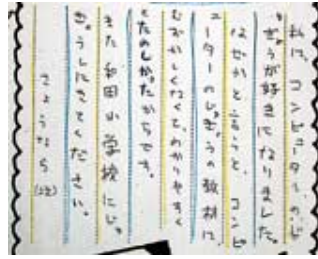 私は、コンピーターのじ
ぎょうが好きになりました。
なぜかと言うと、コンピ
ューターのじぎょうの教材は、
むずかしくなくて、わかりやすく
たのしかったからです。
また和田小学校にじ
ぎょうしにきてください。
さようなら